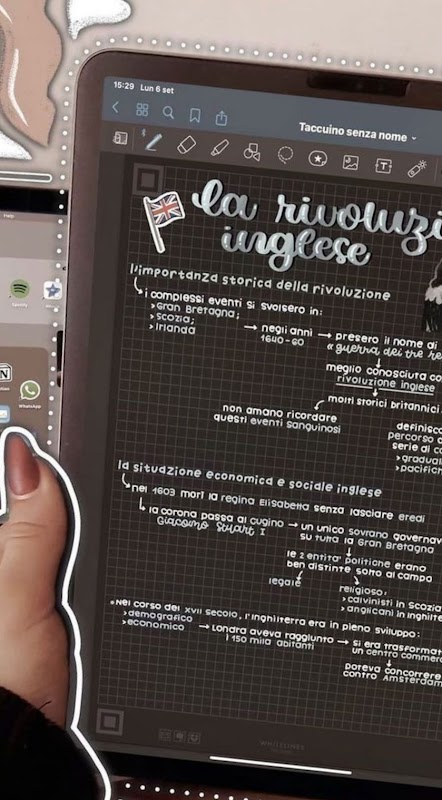 15:29 Lun 6 set
Taccuino senza nome
la rivoluzi
inglese
l'importanza storica della rivoluzione
i complessi eventi si svolsero in:
> Gran Bretagna;
> Scozia;
> Irlanda
→ negli anni
1640-60
→ presero il nome di
«guerra dei tre re
meglio conosciuta co
rivoluzione inglese
molti storici britannici
non amano ricordare
questi eventi sanguinosi
definisco
percorso d
serie di co
> gradual
> pacifich
la situazione economica e sociale inglese
nel 1603 morì la regina Elisabetta senza lasciare eredi
la corona passa al cugino
Giacomo Stuart I
→ un unico sovrano governav
su tutta la Gran Bretagna
le 2 entità politiche erano
ben distinte sotto al campo
legale
religioso:
> calvinisti in Scozia
> anglicani in Inghilte
Nel corso del XVII secolo, l'Inghilterra era in pieno sviluppo:
> demografico
> economico
→ Londra aveva raggiunto
i 150 mila abitanti
→ si era trasformat
un centro commerc
poteva concorrere
contro Amsterdam
WHITELINES
Help
Spotify
WhatsApp